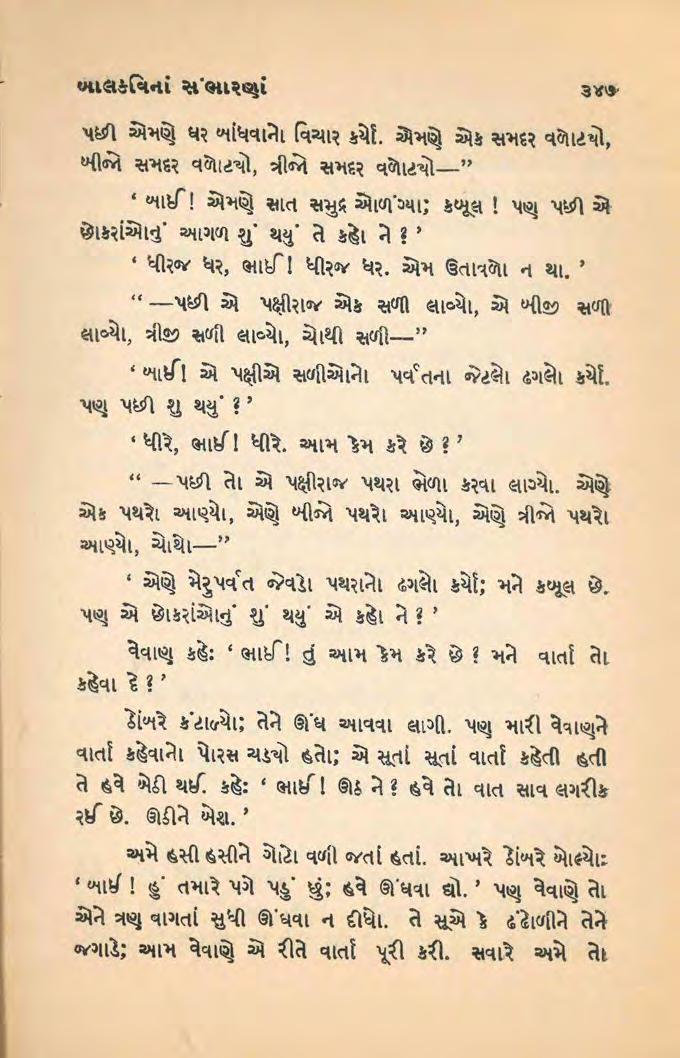 બાલકવિનાં સંભારણાં ૩૪૭
પછી એમણે ઘર બાંધવાનો વિચાર કર્યો. એમણે એક સમદર વળોટ્યો,
બીજો સમદર વળોટ્યો, ત્રીજો સમદર વળોટ્યો—”
‘ બાઈ! એમણે સાત સમુદ્ર ઓળંગ્યા; કબૂલ ! પણ પછી એ
છોકરાંઓનું આગળ શું થયું તે કહો ને ? ’
‘ ધીરજ ધર, ભાઈ! ધીરજ ધર. એમ ઉતાવળો ન થા. ’
“ —પછી એ પક્ષીરાજ એક સળી લાવ્યો, એ બીજી સળી
લાવ્યો, ત્રીજી સળી લાવ્યો, ચોથી સળી—”
‘ બાઈ! એ પક્ષીએ સળીઓનો પર્વતના જેટલો ઢગલો કર્યો.
પણ પછી શુ થયું ? ’
‘ ધીરે, ભાઈ! ધીરે. આમ કેમ કરે છે ? ’
“ —પછી તો એ પક્ષીરાજ પથરા ભેળા કરવા લાગ્યો. એણે
એક પથરો આણ્યો, એણે બીજો પથરો આણ્યો, એણે ત્રીજો પથરો
આણ્યો, ચોથો—”
‘ એણે મેરુપર્વત જેવડો પથરાનો ઢગલો કર્યો; મને કબૂલ છે.
પણ એ છોકરાંઓનું શું થયું એ કહો ને ? ’
વેવાણ કહે: ‘ ભાઈ! તું આમ કેમ કરે છે ? મને વાર્તા તો
કહેવા દે ? ’
ઠોંબરે કંટાળ્યો; તેને ઊંઘ આવવા લાગી. પણ મારી વેવાણને
વાર્તા કહેવાનો પોરસ ચડ્યો હતો; એ સૂતાં સૂતાં વાર્તા કહેતી હતી
તે હવે બેઠી થઈ. કહે: ‘ ભાઈ! ઊઠ ને ? હવે તો વાત સાવ લગરીક
રઈ છે. ઊઠીને બેશ. ’
અમે હસી હસીને ગોટો વળી જતાં હતાં. આખરે ઠોંબરે બોલ્યો:
‘ બાઈ ! હું તમારે પગે પડું છું; હવે ઊંઘવા દ્યો. ’ પણ વેવાણે તો
એને ત્રણ વાગતાં સુધી ઊંઘવા ન દીધો. તે સૂએ કે ઢંઢોળીને તેને
જગાડે; આમ વેવાણે એ રીતે વાર્તા પૂરી કરી. સવારે અમે તો